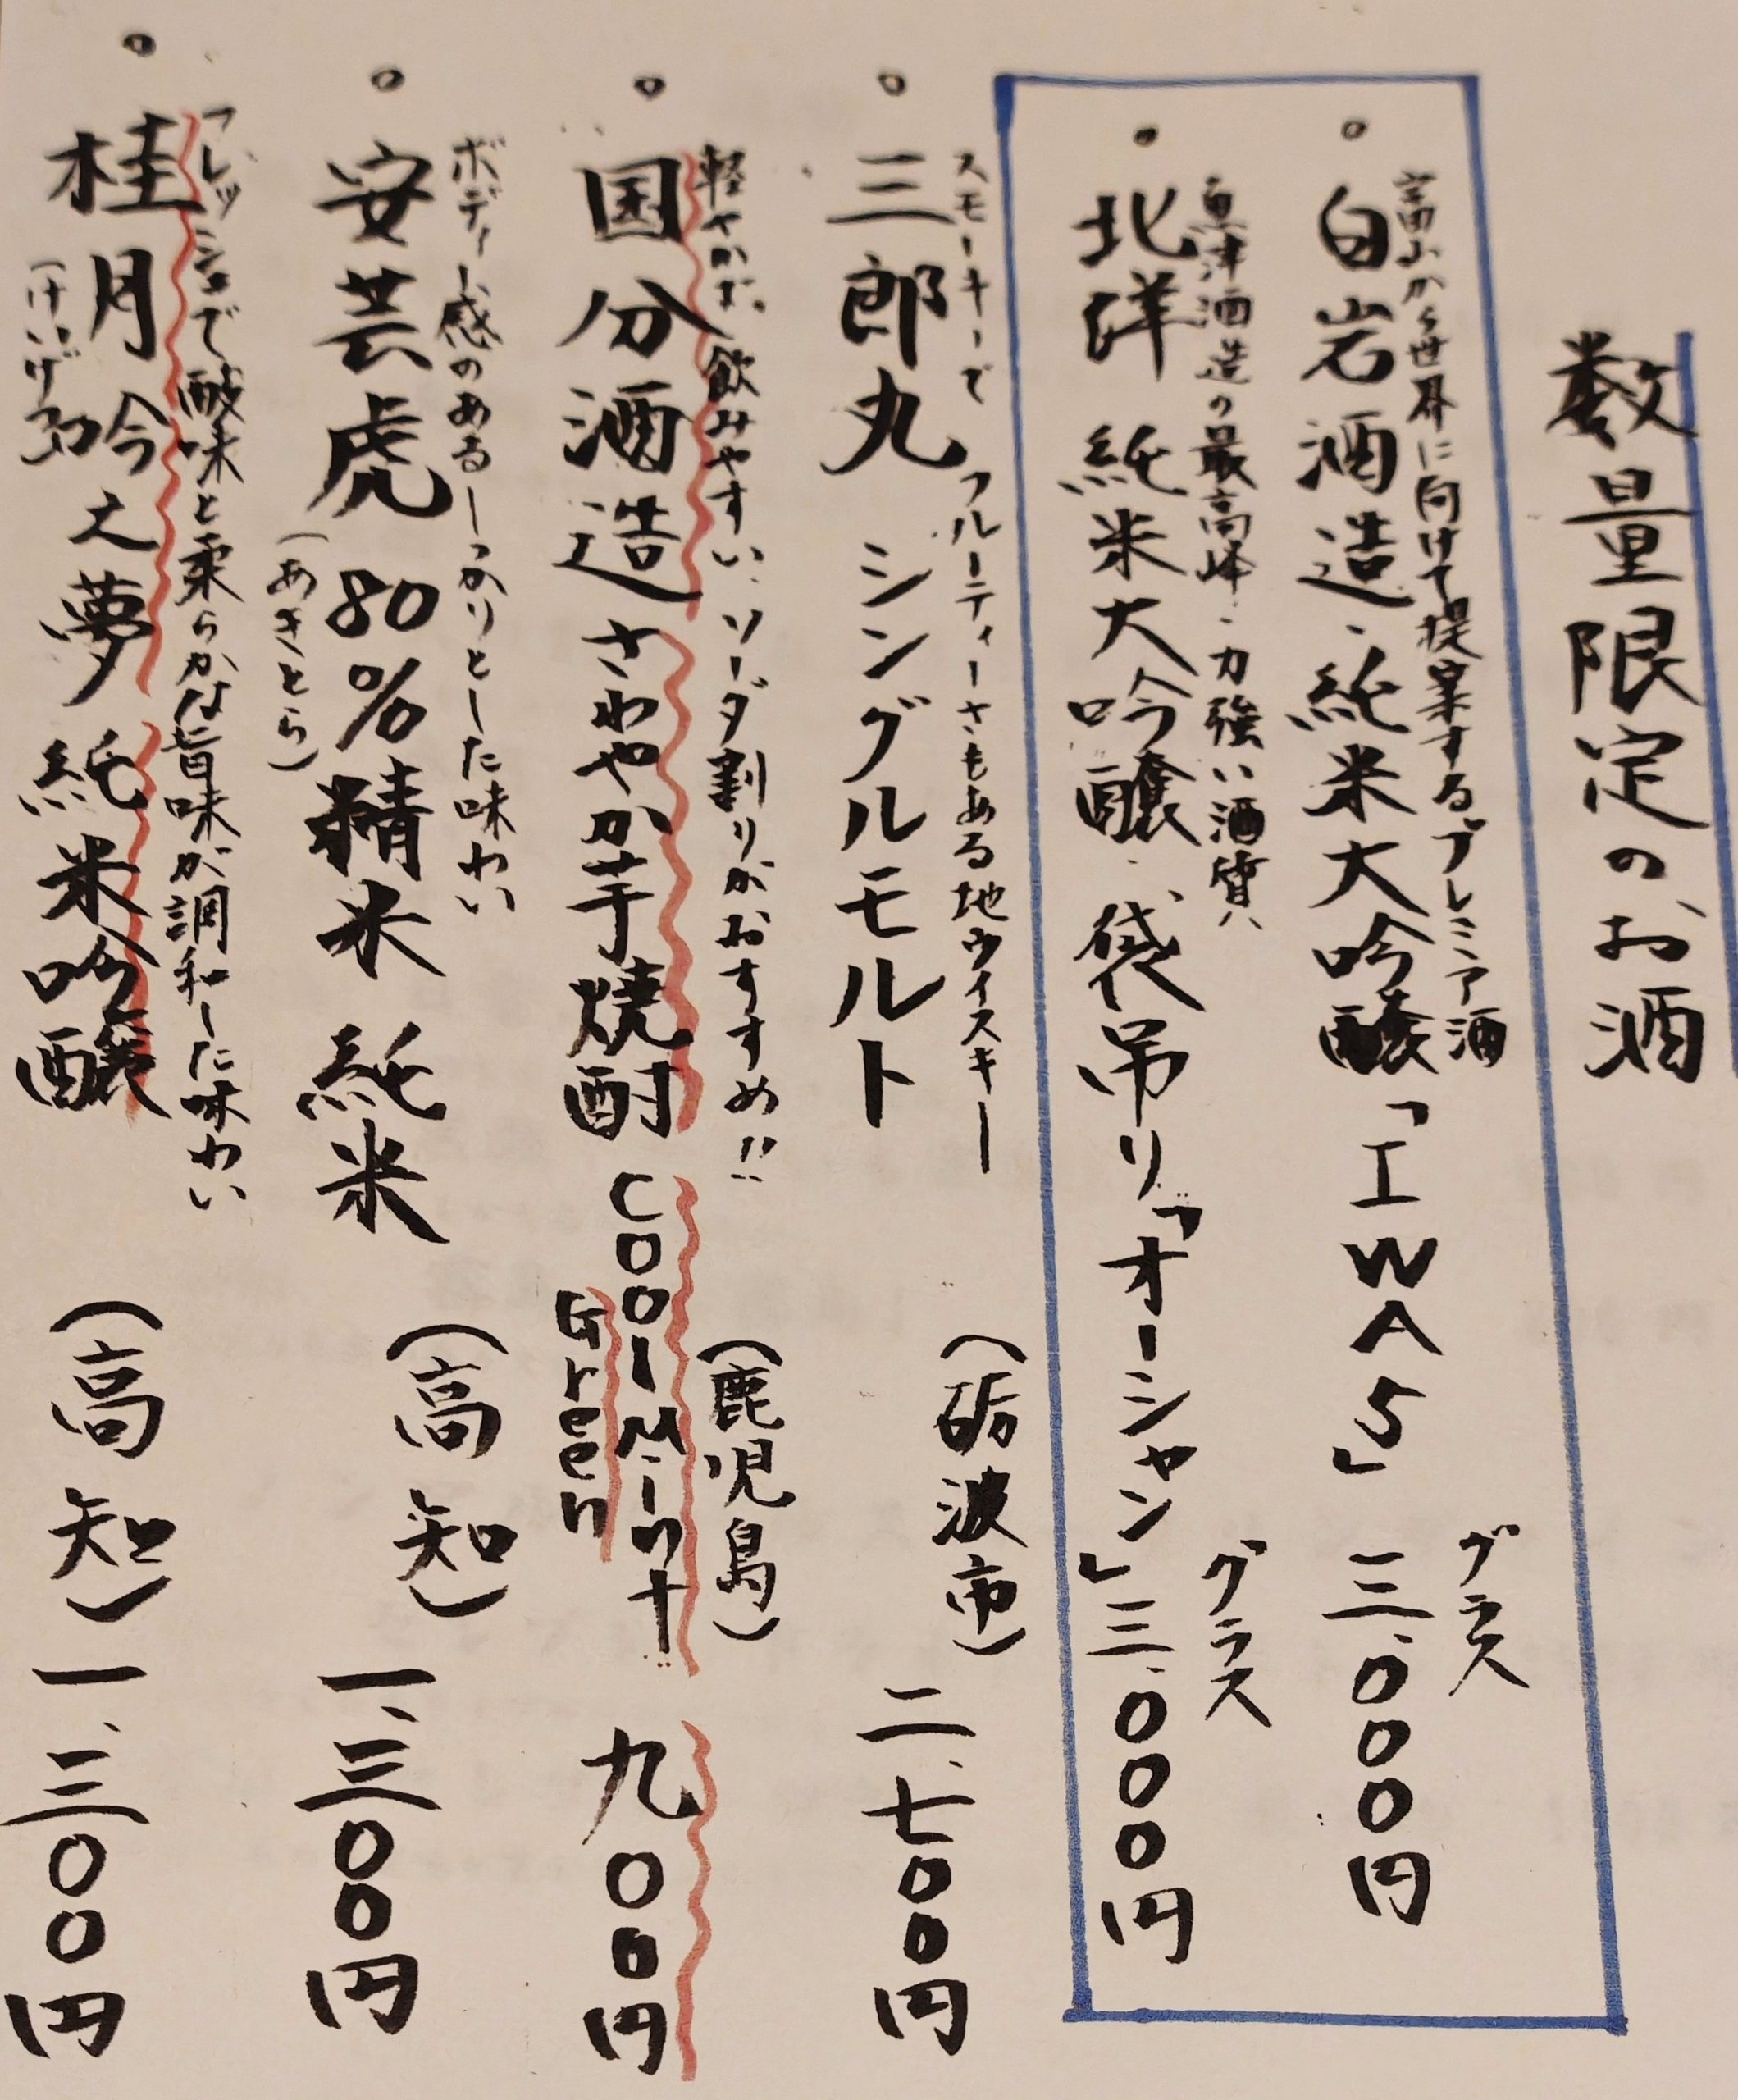 数量限定のお酒
富山から世界に向けて提案するプレミア酒
白岩酒造・純米大吟醸「IWA5」 グラス 三、〇〇〇円
魚津酒造の最高峰・力強い酒質八
北洋 純米大吟醸・袋吊り「オーシャン」 グラス 三、〇〇〇円
スモーキーで フルーティーさもある地ウイスキー
三郎丸 シングルモルト (砺波市) 二、七〇〇円
軽やかだ。飲みやすい、ソーダ割りがおすすめ!!
国分酒造 さわやか芋焼酎 Cool Mint Green (鹿児島) 九〇〇円
ボディー感のあるしっかりとした味わい
安芸虎 80%精米 純米 (高知) 一、三〇〇円
(あきとら)
フレッシュで酸味と柔らかな旨味が調和した味わい
桂月 吟之夢 純米吟醸 (高知) 一、三〇〇円
(けいげつ)